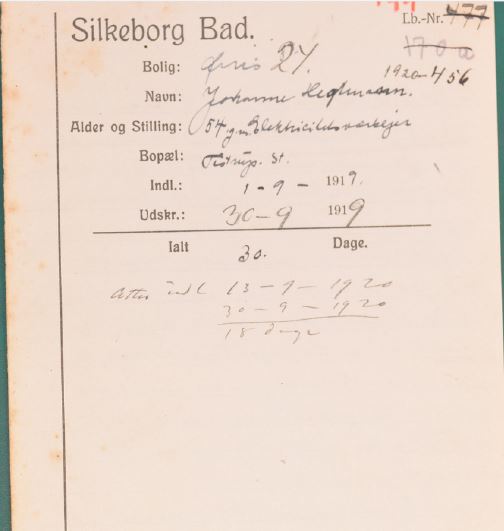 Silkeborg Bad.
Lb.-Nr. 477
170 a
Bolig: 24.
1920-456
Navn: Johanne
Alder og Stilling: 54 gm. Elektricitetsværkejer
Bopæl: Tistrup. St.
Indl.: 1-9- 1919.
Udskr.: 30-9 1919
Ialt 30. Dage.
Atter indl 13-9-1920
30-9-1920
18 dage